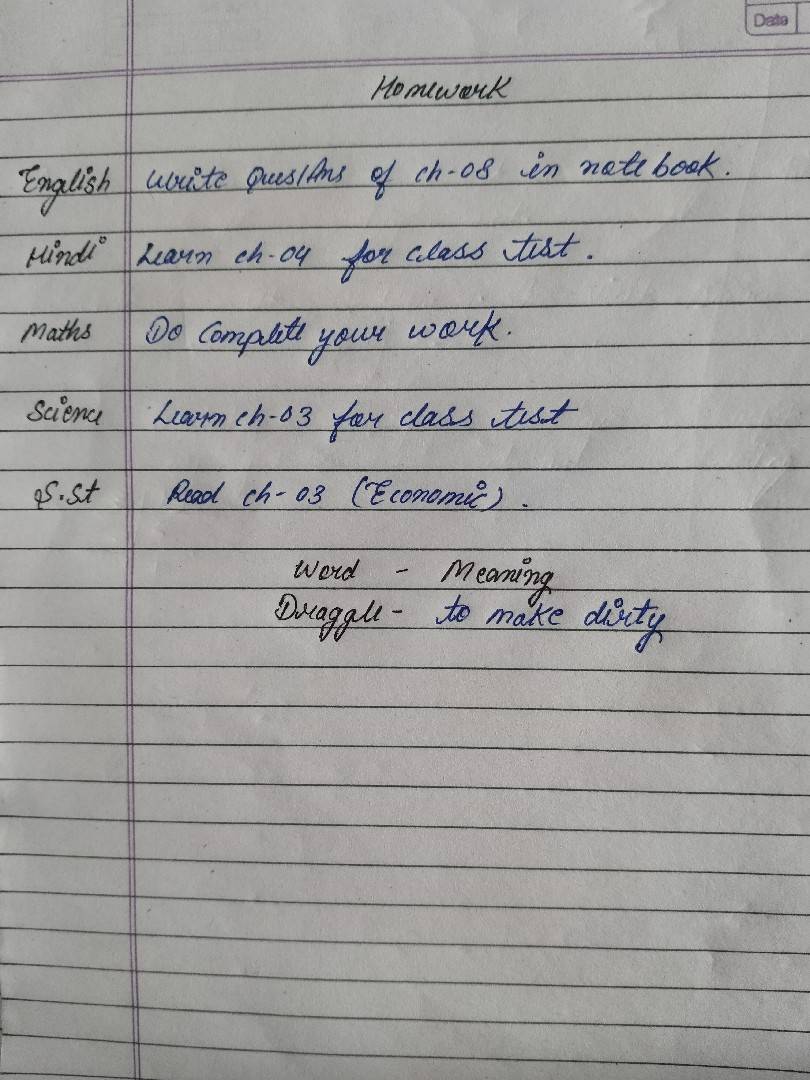 Date
Homework
English Write Ques/Ans of ch-08 in notebook.
Hindi Learn ch-04 for class test.
Maths Do Complete your work.
Science Learn ch-03 for class test
S.St Read ch-03 (Economic).
Word - Meaning
Draggle - to make dirty